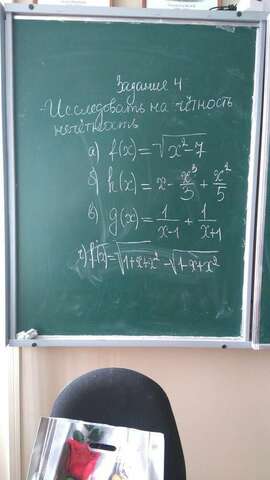 Задание 4
Исследовать на чётность
нечётность
а) f(x) = √(x² - 7)
б) h(x) = x - x³/3 + x²/5
в) g(x) = 1/(x-1) + 1/(x+1)
г) f(x) = √(1+x+x²) - √(1-x+x²)